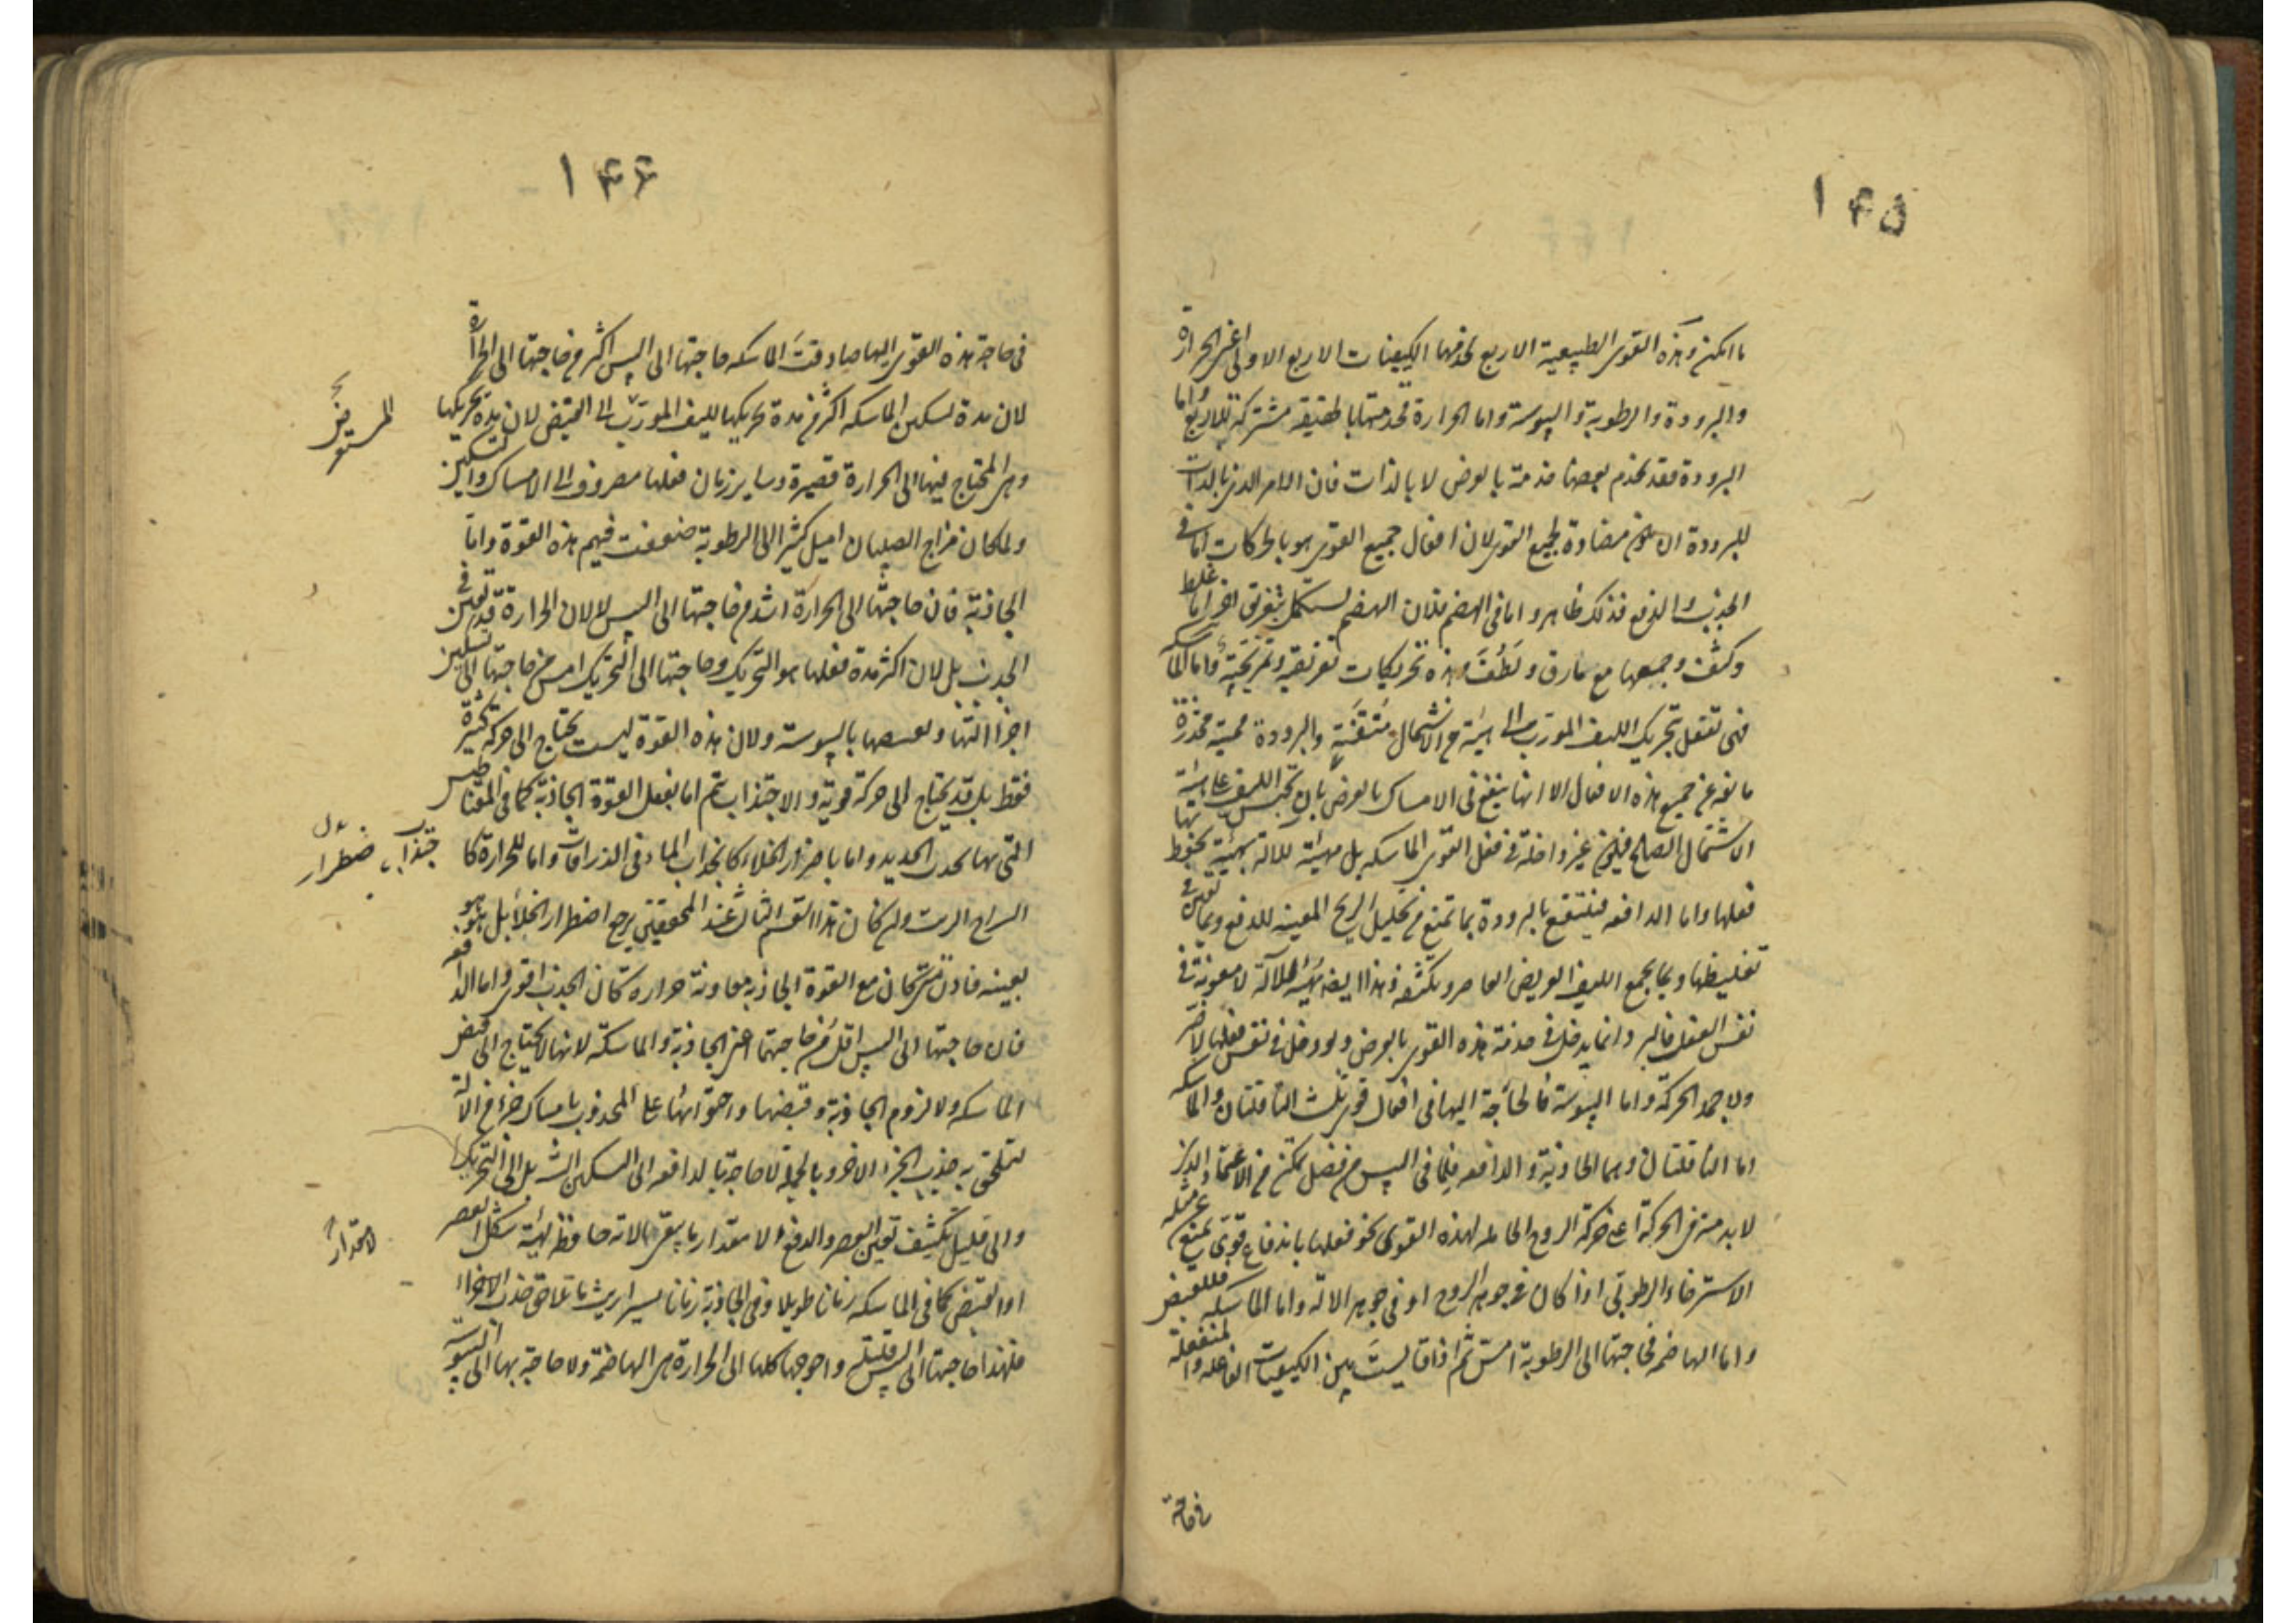 ۱۴۵
ما امكن وهذه القوى الطبيعية الاربع تخدمها الكيفيات الاربع الاولى اعنى الحرارة
والبرودة والرطوبة واليبوسة واما الحرارة فخدمتها بالحقيقة مشتركة للاربع واما
البرودة فقد يخدم بعضها خدمة بالعرض لا بالذات فان الامر الذى بالذات
للبرودة ان يكون مضادة لجميع القوى لان افعال جميع القوى هو بالحركات اما فى
الجذب والدفع فذلك ظاهر واما فى الهضم فلان الهضم يستكمل بتفريق اجزاء ما غلظ
وكثف وجمعها مع ما رق ولطف وهذه تحريكات تفريقية وتمزيجية واما الماسكه
فهى تفعل بتحريك الليف المورب الى هيئة من الاشتمال متقنة والبرودة مميتة مخدرة
مانعة عن جميع هذه الافعال الا انها ينفع فى الامساك بالعرض بان تحبس الليف على هيئة
الاشتمال الصالح فيكون غير داخلة فى فعل القوى الماسكه بل مهيئة للالة تهيئة يحفظ بها
فعلها واما الدافعه فينتفع بالبرودة بما تمنع من تحليل الريح المعينة للدفع وبما تعين فى
تغليظها وبما يجمع الليف العريض العاصر ويكثفه وهذا ايضا تهيئة للالة لا معونة فى
نفس الفعل فالبرد انما يدخل فى خدمة هذه القوى بالعرض ولو دخل فى نفس فعلها لاضر
ولاخمد الحركة واما اليبوسة فالحاجة اليها فى افعال قوى ثلث الناقلتان والماسكه
اما الناقلتان وهما الجاذبة والدافعه فلما فى اليبس من فضل تمكن من الاعتماد الذى
لابد منه فى الحركة اعنى حركة الروح الحامله لهذه القوى نحو فعلها باندفاع قوى يمنع عن مثله
الاسترخاء الرطوبى اذا كان فى جوهر الروح او فى جوهر الالة واما الماسكه فللقبض
واما الهاضمه فحاجتها الى الرطوبة امس ثم اذا قايست بين الكيفيات الفاعله والمنفعلة
فى حاجة
۱۴۶
فى حاجة هذه القوى اليها صادفت الماسكه حاجتها الى اليبس اكثر من حاجتها الى الحرارة
لان مدة تسكين الماسكه اكثر من مدة تحريكها لليف المورب الى القبض لان مدة تحريكها
وهى المحتاج فيها الى الحرارة قصيرة وساير زمان فعلها مصروف الى الامساك والتسكين
ولما كان مزاج الصبيان اميل كثيرا الى الرطوبة ضعفت فيهم هذه القوة واما
الجاذبة فان حاجتها الى الحرارة اشد من حاجتها الى اليبس لا لان الحرارة قد تعين فى
الجذب بل لان اكثر مدة فعلها هو التحريك وحاجتها الى التحريك امس من حاجتها الى تسكين
اجزاء التها وتقبضها باليبوسة ولان هذه القوة ليست يحتاج الى حركة كثيرة
فقط بل قد يحتاج الى حركة قوية والاجتذاب يتم اما بفعل القوة الجاذبة كما فى المغناطيس
التى بها تجذب الحديد واما باضطرار الخلاء كانجذاب الماء فى الزراقات واما للحرارة كما
السراج الدهن وان كان هذا القسم الثالث عند المحققين يرجع اضطرار الخلا بل هو هو
بعينه فاذن متى كان مع القوة الجاذبة معاونة حرارة كان الجذب اقوى واما الدافعه
فان حاجتها الى اليبس اقل من حاجتهما اعنى الجاذبة والماسكة لانها لا يحتاج الى قبض
الماسكه ولا لزوم الجاذبة وقبضها واحتوائها على المجذوب بامساك جزء من الالة
لتلحق به جذب الجزء الاخر وبالجملة لا حاجة بالدافعه الى التسكين البتة بل الى التحريك
والى قليل تكثيف تعين العصر والدفع لا مقدار ما يبقى الالة حافظة لهيئة شكل العصر
او القبض كما فى الماسكه زمانا طويلا وفى الجاذبة زمانا يسيرا ريث ما تلاحق جذب الاجزاء
فلهذا حاجتها الى اليبس قليلة واحوجها كلها الى الحرارة هى الهاضمة ولا حاجة بها الى اليبوسة